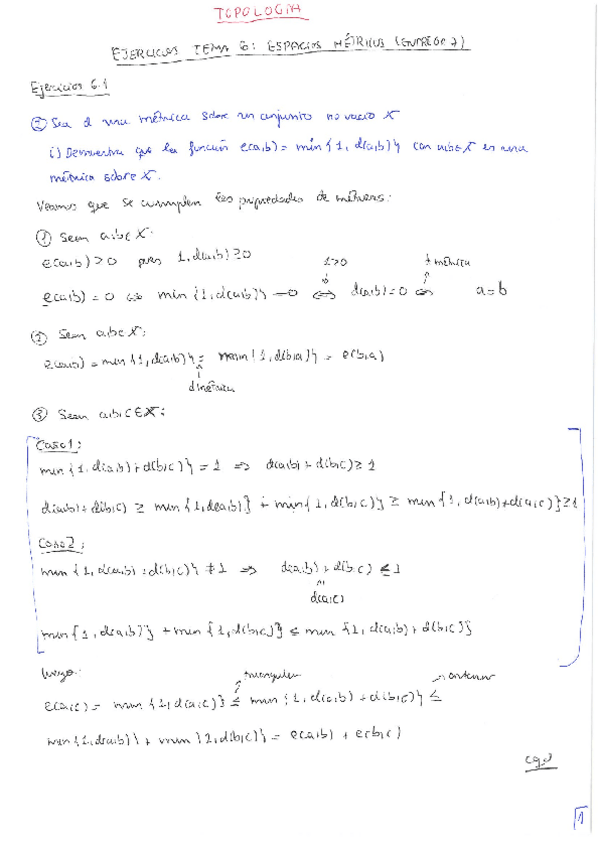 TOPOLOGÍA
EJERCICIOS TEMA 6: ESPACIOS MÉTRICOS
Ejercicios 6.1
② Sea d una métrica sobre un conjunto no vacío X
i) Demuestra que la función e(a,b) = min{1, d(a,b)} con a,b∈X es una
métrica sobre X.
Veamos que se cumplen las propiedades de métricas:
① Sean a,b∈X:
e(a,b) ≥ 0 pues 1, d(a,b) ≥ 0
1>0 d métrica
e(a,b) = 0 ⇔ min{1, d(a,b)} = 0 ⇔ d(a,b) = 0 ⇔ a = b
② Sean a,b∈X:
e(a,b) = min{1, d(a,b)} = min{1, d(b,a)} = e(b,a)
d métrica
③ Sean a,b,c∈X:
Caso 1:
min{1, d(a,b) + d(b,c)} = 1 ⇒ d(a,b) + d(b,c) ≥ 1
d(a,b) + d(b,c) ≥ min{1, d(a,b)} + min{1, d(b,c)} ≥ min{1, d(a,b) + d(a,c)} ≥ 1
Caso 2:
min{1, d(a,b) + d(b,c)} ≠ 1 ⇒ d(a,b) + d(b,c) ≤ 1
d(a,c)
min{1, d(a,b)} + min{1, d(b,c)} ≤ min{1, d(a,b) + d(b,c)}
luego: triangular anterior
e(a,c) = min{1, d(a,c)} ≤ min{1, d(a,b) + d(b,c)} ≤
min{1, d(a,b)} + min{1, d(b,c)} = e(a,b) + e(b,c)
cqd
1